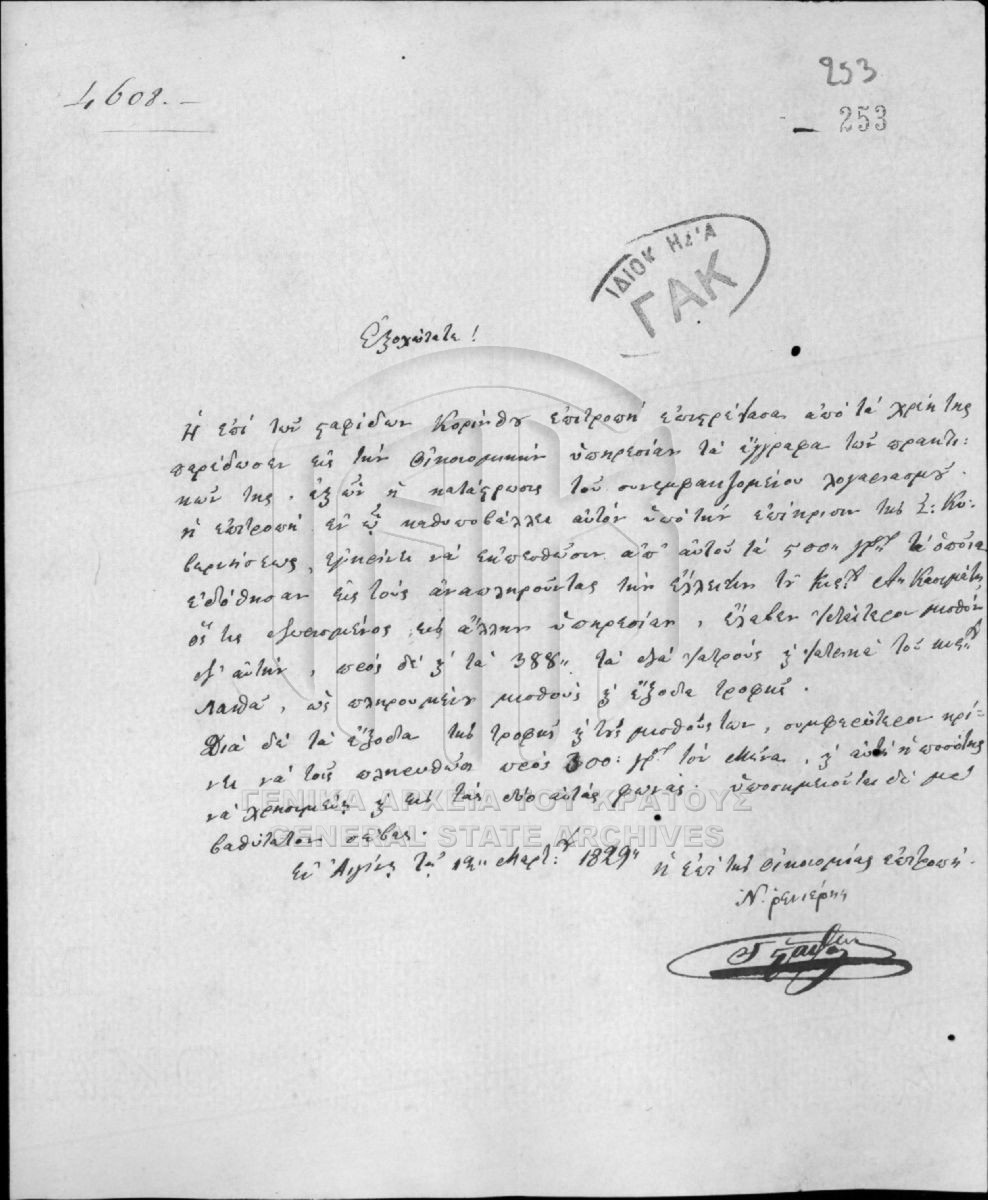 4608.—
253
— 253
ΙΔΙΟΚ ΗΣΊΑ
ΓΑΚ
Ἐξοχώτατε!
Ἡ ἐπὶ τῶν σταφίδων Κορίνθου ἐπιτροπὴ ἐπιστρέψασα ἀπὸ τὰ χρέη της
παρέδωσεν εἰς τὴν Οἰκονομικὴν ὑπηρεσίαν τὰ ἔγγραφα τῶν πρακτι:
κῶν της. ἐξ ὧν ἡ κατάστρωσις τοῦ λογαριασμοῦ.
ἡ ἐπιτροπὴ ἐν ᾧ καθυποβάλλει αὐτὸν ὑπὸ τὴν ἐπίκρισιν τῆς Σ: Κυ:
βερνήσεως, ἐγκρίνει νὰ ἐκπεσθῶσιν ἀπ' αὐτοῦ τὰ 500 γρ: τὰ ὁποῖα
ἐδόθησαν εἰς τοὺς ἀναπληροῦντας τὴν ἔλλειψιν τοῦ Κυρ:
ὅς τις εἰς ἄλλην ὑπηρεσίαν, ἔλαβεν μισθὸν
δι' αὐτὴν, πρὸς δὲ κ' τὰ 388 τὰ διὰ ἰατροὺς κ' ἰατρικὰ τοῦ κυρ:
ὡς πληρουμένου μισθοὺς κ' ἔξοδα τροφῆς.
Διὰ δὲ τὰ ἔξοδα τῆς τροφῆς κ τοὺς μισθούς των, συμφερώτερον κρί=
νει νὰ τοῖς πληρωθῶσι πρὸς 300: γρ: τὸν μῆνα, κ' αὐτὴ ἡ ποσότης
νὰ χρησιμεύσῃ κ εἰς τὰς δύο αὐτὰς. ὑποσημειοῦται δὲ μὲ
βαθύτατον σέβας.
Ἐν Αἰγίνῃ τῇ 12 Μαρτ: 1829
ἡ ἐπὶ τῆς Οἰκονομίας ἐπιτροπή.
Ν. Ρενιέρης
ΓΕΝΙΚΑ ΑΡΧΕΙΑ ΤΟΥ ΚΡΑΤΟΥΣ
GENERAL STATE ARCHIVES